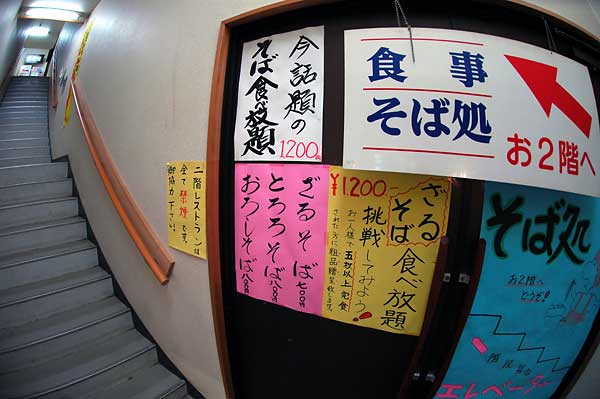 今話題の
そば食べ放題
1200円
食事
そば処
お2階へ
二階レストランは
全て禁煙です。
御協力下さい。
ざるそば 七〇〇円
とろろそば 八〇〇円
おろしそば 八〇〇円
¥1.200
ざる
そば食べ放題
挑戦してみよう!
お一人様で五枚以上完食
された方に粗品贈呈致します。
そば処
お2階へ
どうぞ!!
階段
エレベーター